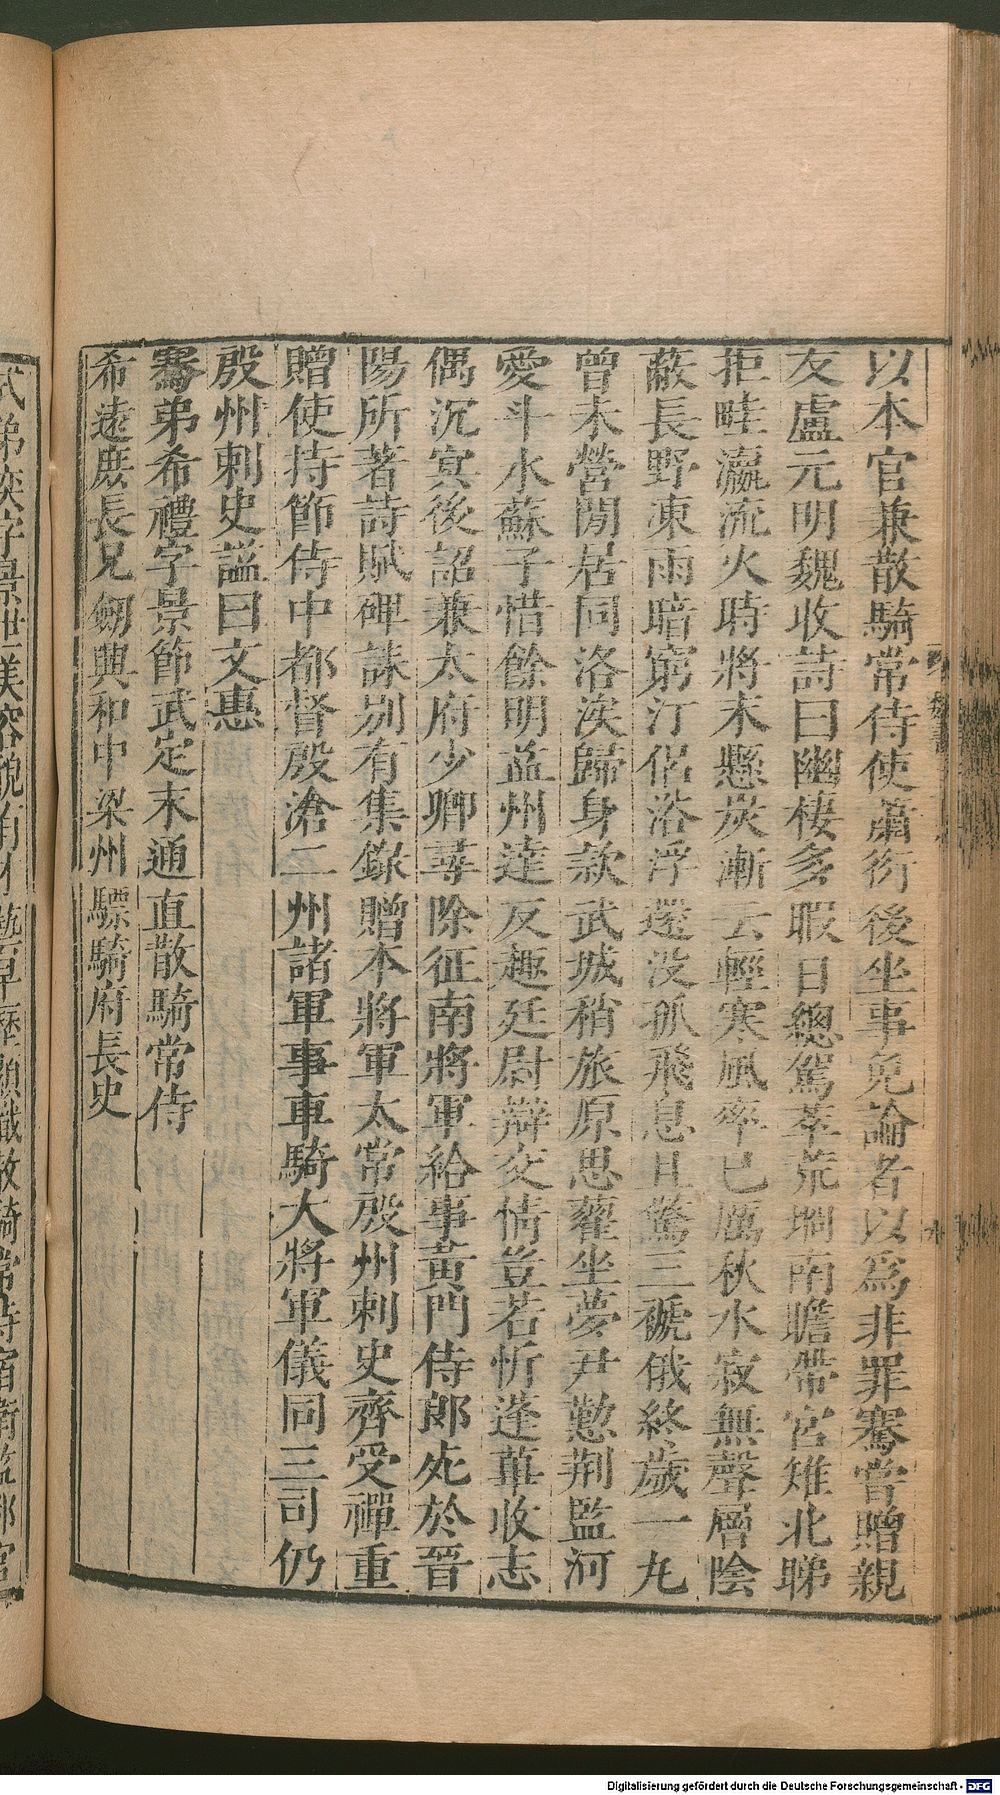 以本官兼散騎常侍使蕭衍後坐事免論者以爲非罪騫嘗贈親
友盧元明魏收詩曰幽棲多暇日總駕萃荒坰南瞻帶宮雉北睇
拒畦瀛流火時將末懸炭漸云輕寒風率已厲秋水寂無聲層陰
蔽長野凍雨暗窮汀侶浴浮還没孤飛息且驚三褫俄終歲一丸
曾未營閒居同洛涘歸身款武城稍旅原思藋坐夢尹懃荆監河
愛斗水蘇子惜餘明益州達友趣廷尉辯交情豈若忻蓬蓽收志
偶沉冥後詔兼太府少卿尋除征南將軍給事黃門侍郎死於晉
陽所著詩賦碑誄别有集錄贈本將軍太常殷州刺史齊受禪重
贈使持節侍中都督殷滄二州諸軍事車騎大將軍儀同三司仍
殷州刺史謚曰文惠
騫弟希禮字景節武定末通直散騎常侍
希遠庶長兄劒興和中梁州驃騎府長史
Digitalisierung gefördert durch die Deutsche Forschungsgemeinschaft - DFG